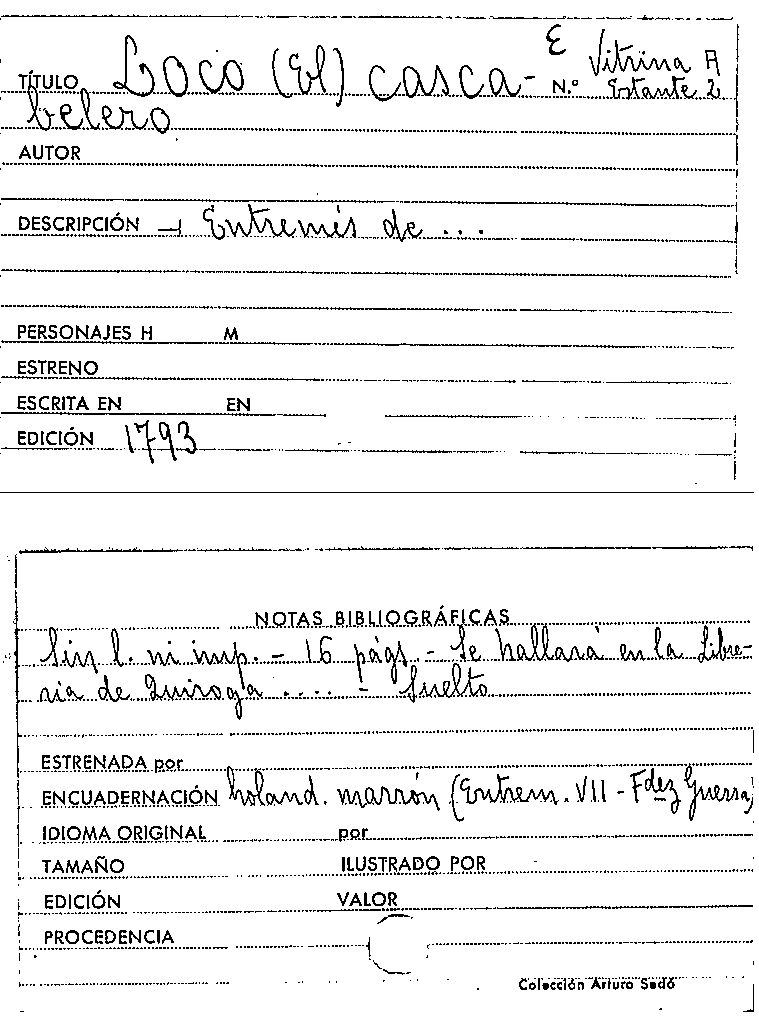 TÍTULO Loco (El) casca- E Vitrina A
N.º Estante 2
belero
AUTOR
DESCRIPCIÓN → Entremés de ...
PERSONAJES H M
ESTRENO
ESCRITA EN EN
EDICIÓN 1793
NOTAS BIBLIOGRÁFICAS
Sin l. ni imp. - 16 págs. - Se hallará en la Libre-
ria de Quiroga .... - Suelto
ESTRENADA por
ENCUADERNACIÓN holand. marrón (Entrem. VII - Fdez Guerra)
IDIOMA ORIGINAL por
TAMAÑO ILUSTRADO POR
EDICIÓN VALOR
PROCEDENCIA
Colección Arturo Sedó